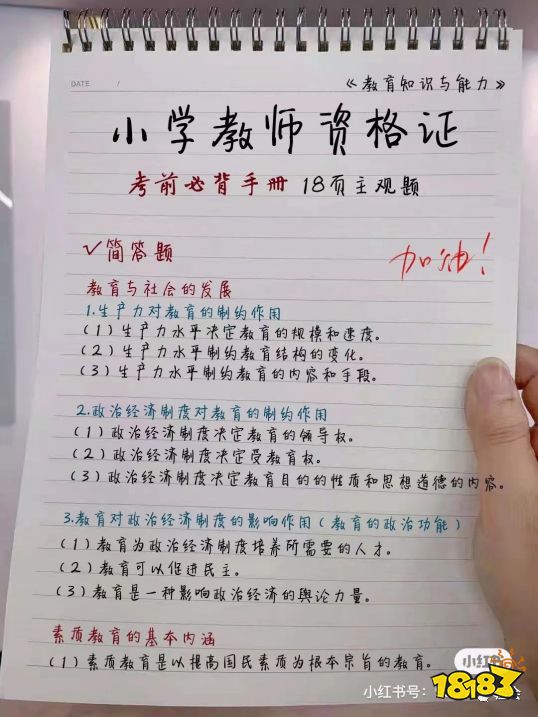 DATE /
《教育知识与能力》
小学教师资格证
考前必背手册 18页主观题
✓简答题
加油!
教育与社会的发展
1.生产力对教育的制约作用
(1)生产力水平决定教育的规模和速度。
(2)生产力水平制约教育结构的变化。
(3)生产力水平制约教育的内容和手段。
2.政治经济制度对教育的制约作用
(1)政治经济制度决定教育的领导权。
(2)政治经济制度决定受教育权。
(3)政治经济制度决定教育目的的性质和思想道德的内容。
3.教育对政治经济制度的影响作用(教育的政治功能)
(1)教育为政治经济制度培养所需要的人才。
(2)教育可以促进民主。
(3)教育是一种影响政治经济的舆论力量。
素质教育的基本内涵
(1)素质教育是以提高国民素质为根本宗旨的教育。
小红书
小红书号:
18183